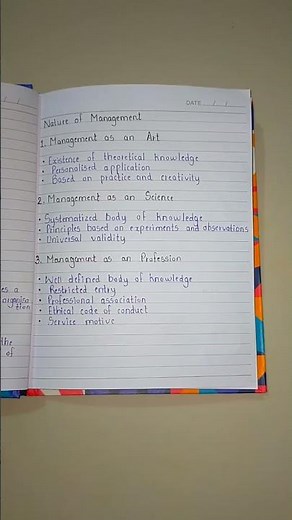 DATE / /
Nature of Management
1. Management as an Art
• Existence of theoretical knowledge
• Personalised application
• Based on practice and creativity
2. Management as an Science
• Systematized body of knowledge
• Principles based on experiments and observations
• Universal validity
3. Management as an Profession
• Well defined body of knowledge
• Restricted entry
• Professional association
• Ethical code of conduct
• Service motive
es a
organisa
tion
the
of